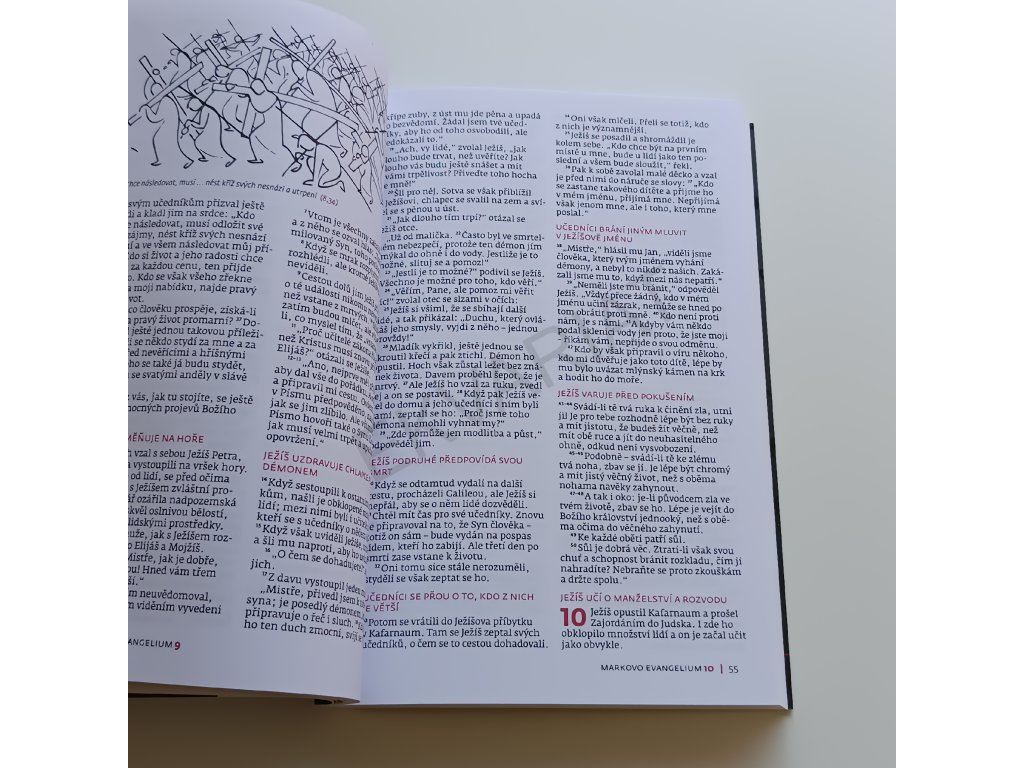 chce následovat, musí ... nést kříž svých nesnází a utrpení (8,34)
svým učedníkům přizval ještě
dí a kladl jim na srdce: „Kdo
e následovat, musí odložit své
zájmy, nést kříž svých nesnází
ní a ve všem následovat můj pří-
do si život a jeho radosti chce
za každou cenu, ten přijde
e. Kdo se však všeho zřekne
a moji nabídku, najde pravý
vot.
co člověku prospěje, získá-li
a pravý život promarní? Do-
ještě jednou takovou příleži-
í se někdo stydí za mne a za
řed nevěřícími a hříšnými
ho se také já budu stydět,
se svatými anděly v slávě
z vás, jak tu stojíte, se ještě
mocných projevů Božího
MĚŇUJE NA HOŘE
h vzal s sebou Ježíš Petra,
a vystoupili na vršek hory.
od lidí, se před očima
s Ježíšem zvláštní pro-
ář ozářila nadpozemská
kvěl oslnivou bělostí,
lidskými prostředky.
uže, jak s Ježíšem roz-
Elijáš a Mojžíš.
Mistře, jak je dobře,
ou! Hned vám třem
š.“
neuvědomoval,
m viděním vyvedení
ANGELIUM 9
7 Vtom je všechny
a z něho se ozval hlas:
milovaný Syn, toho
8 Když se mrak
rozhlédli, ale kromě
neviděli.
9 Cestou dolů jim
o té události nikomu
než vstane z mrtvých
zatím budou mlčet, ale
li, co myslel tím, že
11 „Proč učitelé zákona
než Kristus musí znovu
Elijáš?“ otázali se Ježíše
12–13 „Ano, nejprve měl
aby dal vše do pořádku
a připravil mi cestu.
v Písmu předpověděno,
jak se jim zlíbilo. Ale
Písmo hovoří také o Synu
jak musí velmi trpět a
opovržení.“
JEŽÍŠ UZDRAVUJE CHLAPCE
DÉMONEM
14 Když sestoupili k ostatním
kům, našli je obklopené
lidí; mezi nimi byli i učitelé
kteří se s učedníky o něčem
15 Když však uviděli Ježíše,
a šli mu naproti, aby ho
16 „O čem se dohadujete?“
jich.
17 Z davu vystoupil jeden
„Mistře, přivedl jsem k tobě
syna; je posedlý démonem,
připravuje o řeč i sluch.
ho ten duch zmocní, svíjí se
křípe zuby, z úst mu jde pěna a upadá
o bezvědomí. Žádal jsem tvé učed-
íky, aby ho od toho osvobodili, ale
edokázali to.“
19 „Ach, vy lidé,“ zvolal Ježíš, „jak
louho bude trvat, než uvěříte? Jak
louho vás budu ještě snášet a mít
vámi trpělivost? Přiveďte toho hocha
e mně!“
20 Šli pro něj. Sotva se však přiblížil
Ježíšovi, chlapec se svalil na zem a sví-
el se s pěnou u úst.
21 „Jak dlouho tím trpí?“ otázal se
Ježíš otce.
„Už od malička. 22 Často byl ve smrtel-
ém nebezpečí, protože ten démon jím
mýkal do ohně i do vody. Jestliže je to
možné, slituj se a pomoz!“
23 „Jestli je to možné?“ podivil se Ježíš.
Všechno je možné pro toho, kdo věří.“
24 „Věřím, Pane, ale pomoz mi věřit
íc!“ zvolal otec se slzami v očích:
25 Ježíš si všiml, že se sbíhají další
idé, a tak přikázal: „Duchu, který ovlá-
áš jeho smysly, vyjdi z něho – jednou
rovždy!“
26 Mladík vykřikl, ještě jednou se
kroutil křečí a pak ztichl. Démon ho
pustil. Hoch však zůstal ležet bez zná-
nek života. Davem proběhl šepot, že je
mrtvý. 27 Ale Ježíš ho vzal za ruku, zvedl
ej a on se postavil. 28 Když pak Ježíš ve-
el do domu a jeho učedníci s ním byli
ami, zeptali se ho: „Proč jsme toho
émona nemohli vyhnat my?“
29 „Zde pomůže jen modlitba a půst,“
odpověděl jim.
JEŽÍŠ PODRUHÉ PŘEDPOVÍDÁ SVOU
SMRT
30 Když se odtamtud vydali na další
cestu, procházeli Galileou, ale Ježíš si
nepřál, aby se o něm lidé dozvěděli.
31 Chtěl mít čas pro své učedníky. Znovu
e připravoval na to, že Syn člověka –
totiž on sám – bude vydán na pospas
idem, kteří ho zabijí. Ale třetí den po
smrti zase vstane k životu.
32 Oni tomu sice stále nerozuměli,
styděli se však zeptat se ho.
UČEDNÍCI SE PŘOU O TO, KDO Z NICH
JE VĚTŠÍ
33 Potom se vrátili do Ježíšova příbytku
v Kafarnaum. Tam se Ježíš zeptal svých
učedníků, o čem se to cestou dohadovali.
34 Oni však mlčeli. Přeli se totiž, kdo
z nich je významnější.
35 Ježíš se posadil a shromáždil je
kolem sebe. „Kdo chce být na prvním
místě u mne, bude u lidí jako ten po-
slední a všem bude sloužit,“ řekl.
36 Pak k sobě zavolal malé děcko a vzal
je před nimi do náruče se slovy: 37 „Kdo
se zastane takového dítěte a přijme ho
v mém jménu, přijímá mne. Nepřijímá
však jenom mne, ale i toho, který mne
poslal.“
UČEDNÍCI BRÁNÍ JINÝM MLUVIT
V JEŽÍŠOVĚ JMÉNU
38 „Mistře,“ hlásil mu Jan, „viděli jsme
člověka, který tvým jménem vyhání
démony, a nebyl to nikdo z našich. Zaká-
zali jsme mu to, když mezi nás nepatří.“
39 „Neměli jste mu bránit,“ odpověděl
Ježíš. „Vždyť přece žádný, kdo v mém
jménu učiní zázrak, nemůže se hned po
tom obrátit proti mně. 40 Kdo není proti
nám, je s námi. 41 A kdyby vám někdo
podal sklenici vody jen proto, že jste moji
– říkám vám, nepřijde o svou odměnu.
42 Kdo by však připravil o víru někoho,
kdo mi důvěřuje jako toto dítě, lépe by
mu bylo uvázat mlýnský kámen na krk
a hodit ho do moře.
JEŽÍŠ VARUJE PŘED POKUŠENÍM
43–44 Svádí-li tě tvá ruka k činění zla, utni
ji! Je pro tebe rozhodně lépe být bez ruky
a mít jistotu, že budeš žít věčně, než
mít obě ruce a jít do neuhasitelného
ohně, odkud není vysvobození.
45–46 Podobně – svádí-li tě ke zlému
tvá noha, zbav se jí. Je lépe být chromý
a mít jistý věčný život, než s oběma
nohama navěky zahynout.
47–48 A tak i oko: je-li původcem zla ve
tvém životě, zbav se ho. Lépe je vejít do
Božího království jednooký, než s obě-
ma očima do věčného zahynutí.
49 Ke každé oběti patří sůl.
50 Sůl je dobrá věc. Ztratí-li však svou
chuť a schopnost bránit rozkladu, čím ji
nahradíte? Nebraňte se proto zkouškám
a držte spolu.“
JEŽÍŠ UČÍ O MANŽELSTVÍ A ROZVODU
10 Ježíš opustil Kafarnaum a prošel
Zajordáním do Judska. I zde ho
obklopilo množství lidí a on je začal učit
jako obvykle.
MARKOVO EVANGELIUM 10 | 55